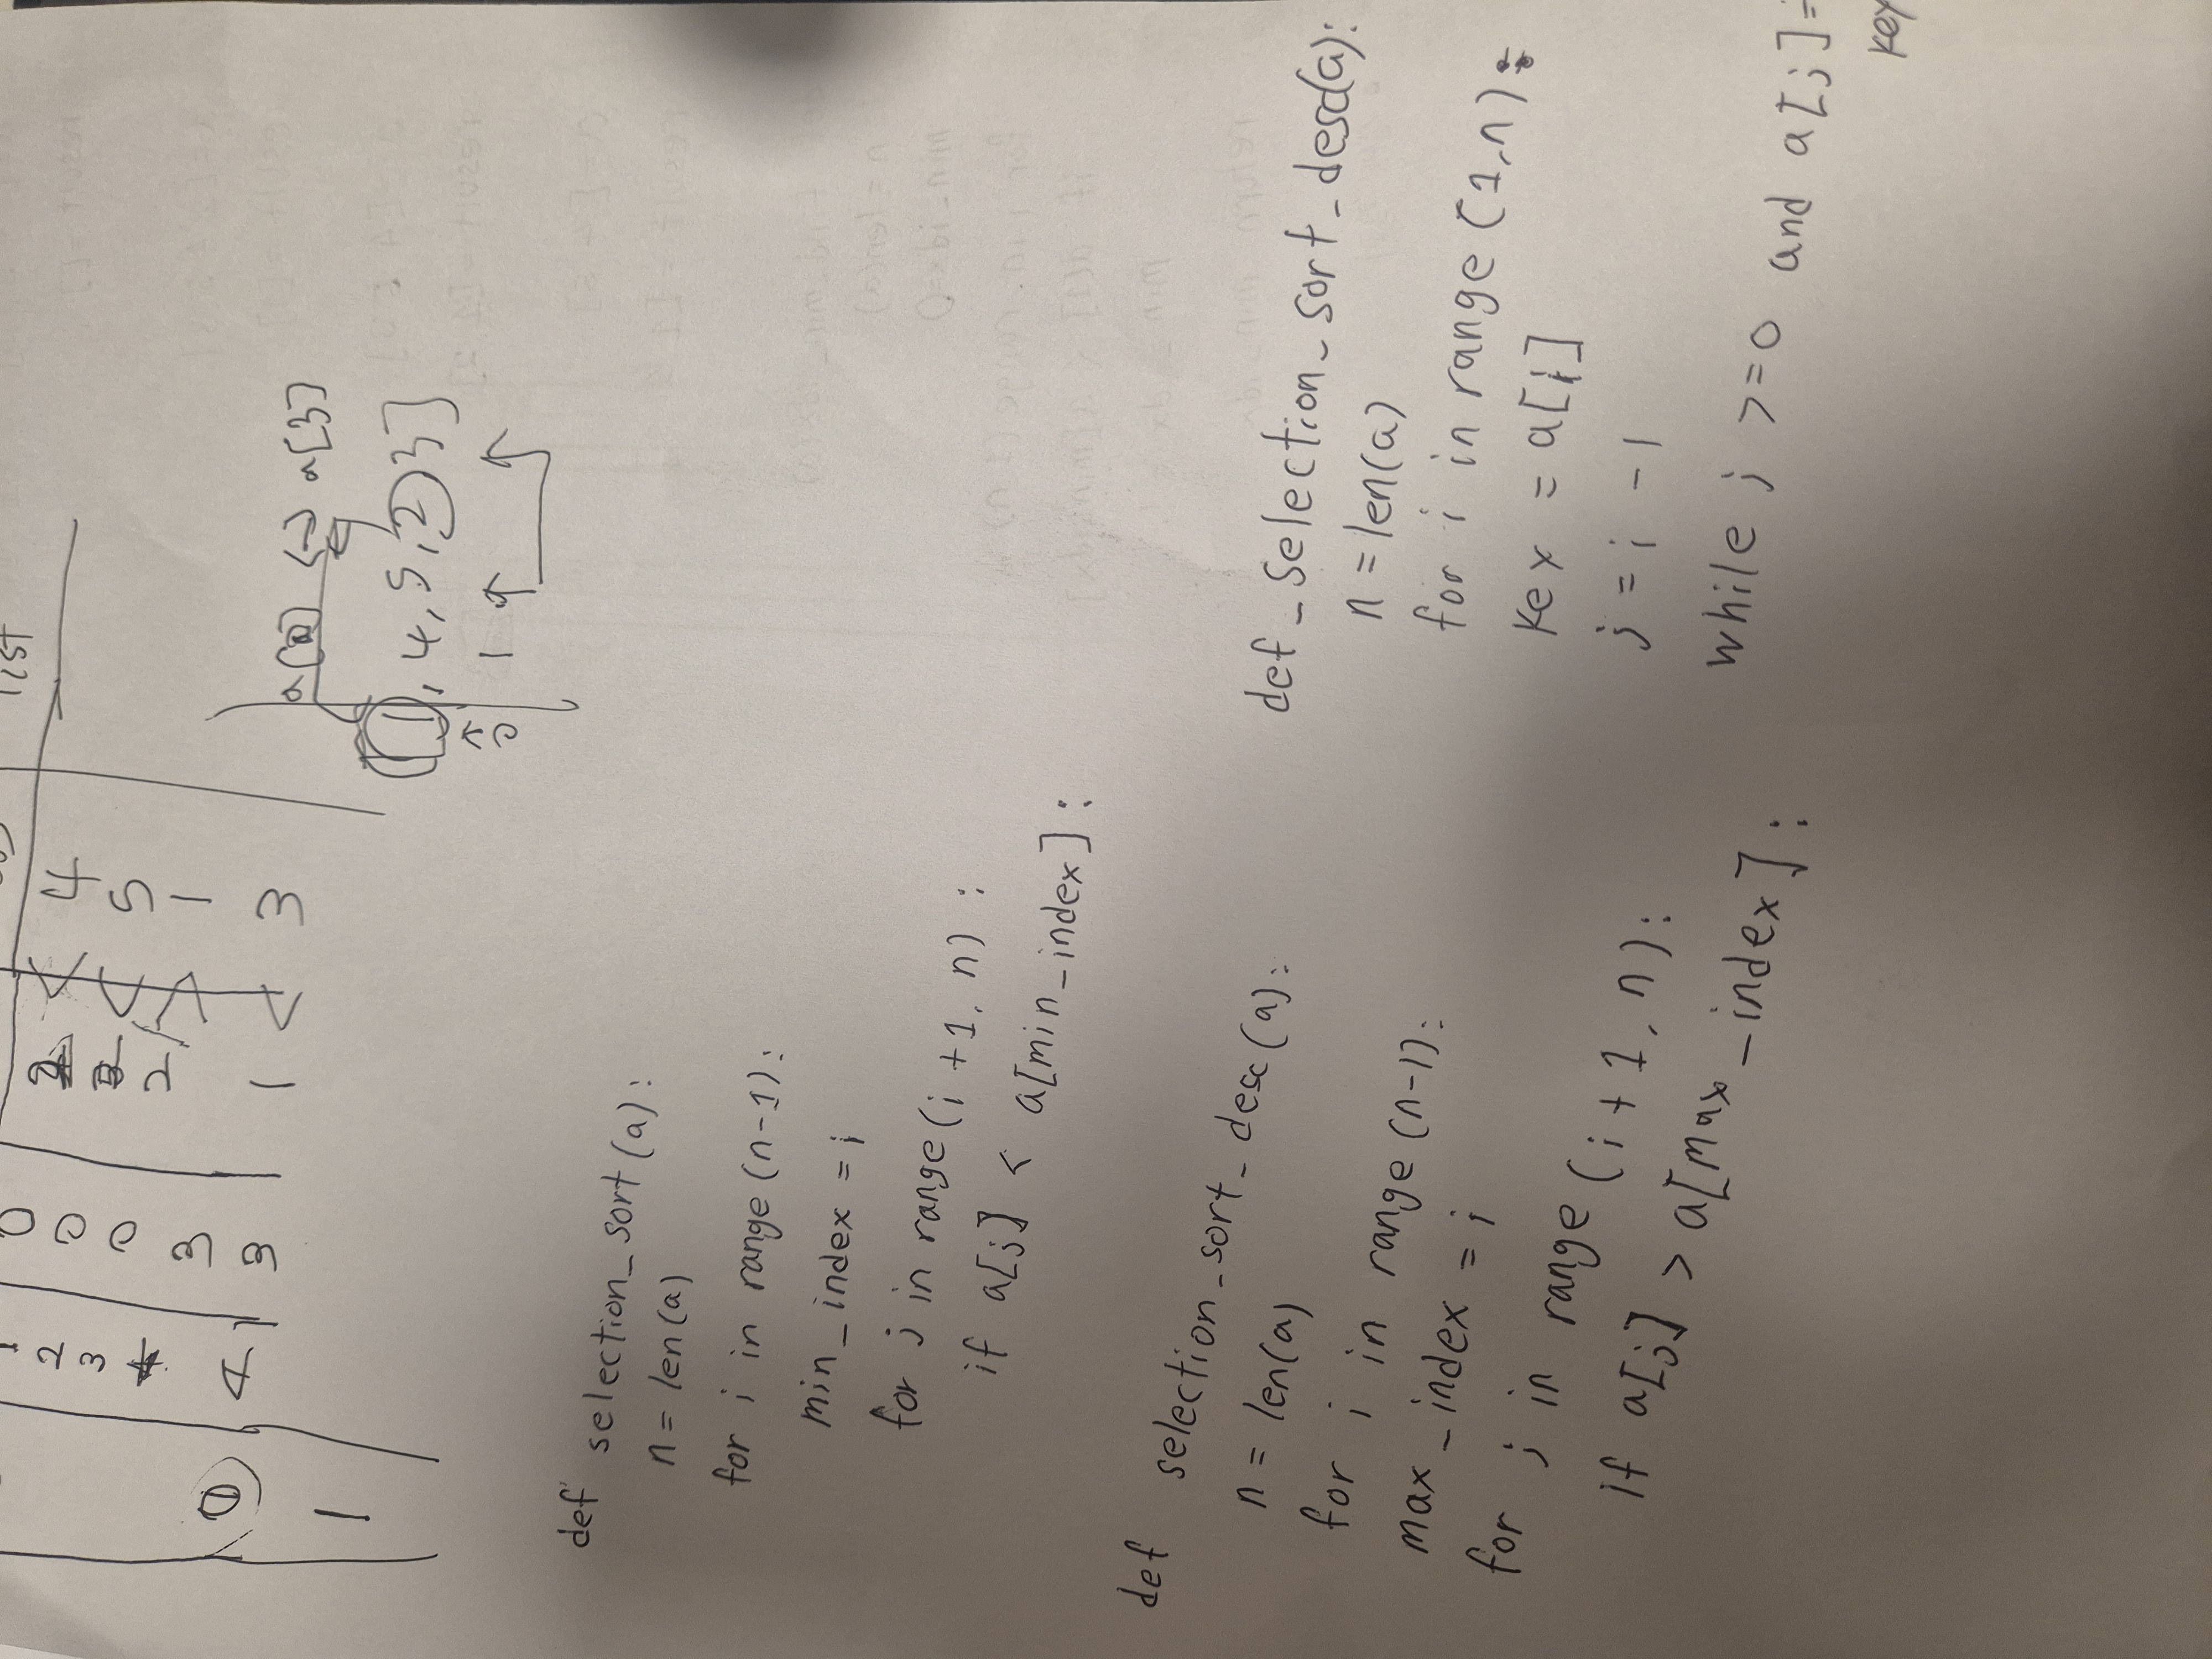 list
4
5
1
3
2
1
0
0
0
3
3
2
3
4
4
1
1
a[0] <-> a[3]
1, 4, 5, 2, 3]
0
1
def selection_sort(a):
n = len(a)
for i in range(n-1):
min_index = i
for j in range(i+1, n):
if a[j] < a[min_index]:
def selection_sort_desc(a):
n = len(a)
for i in range(n-1):
max_index = i
for j in range(i+1, n):
if a[j] > a[max_index]:
def_selection_sort_desc(a):
n = len(a)
for i in range(1,n):
Kex = a[i]
j = i - 1
while j >= 0 and a[j] =
key